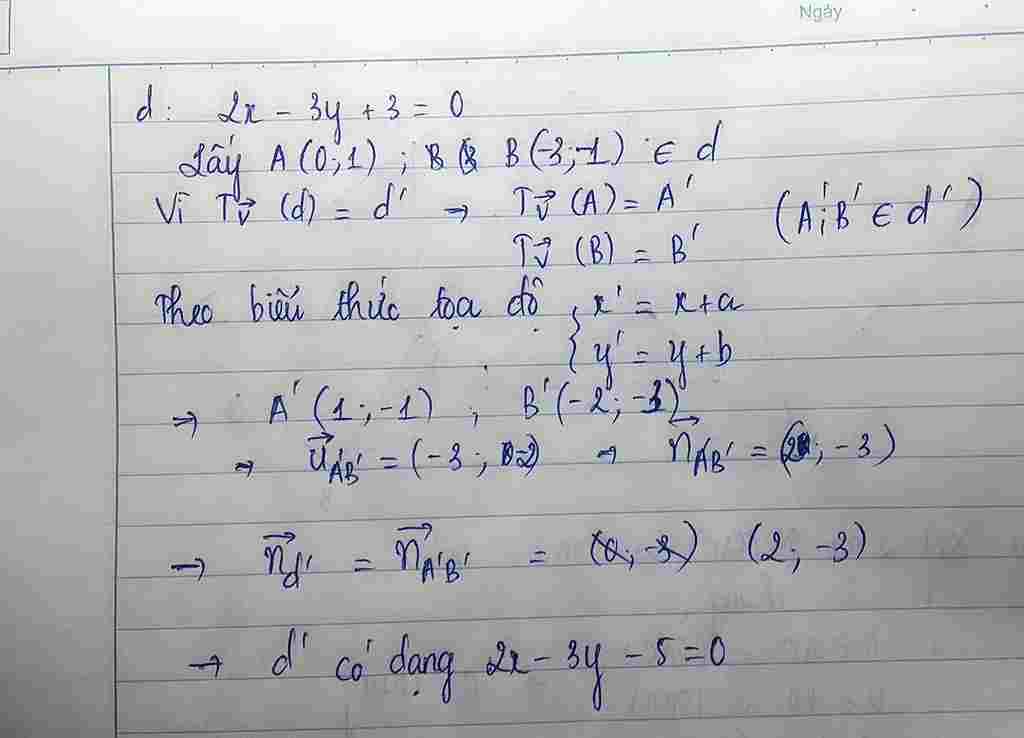 Ngày
d: 2x - 3y + 3 = 0
Lấy A (0;1) ; B B (-3;-1) ∈ d
Vì Tv⃗ (d) = d' → Tv⃗ (A) = A' (A';B' ∈ d')
Tv⃗ (B) = B'
Theo biểu thức tọa độ { x' = x + a
y' = y + b
⇒ A' (1;-1) ; B' (-2;-3)
⇒ u⃗A'B' = (-3;-2) → n⃗A'B' = (2;-3)
→ n⃗d' = n⃗A'B' = (2;-3)
→ d' có dạng 2x - 3y - 5 = 0